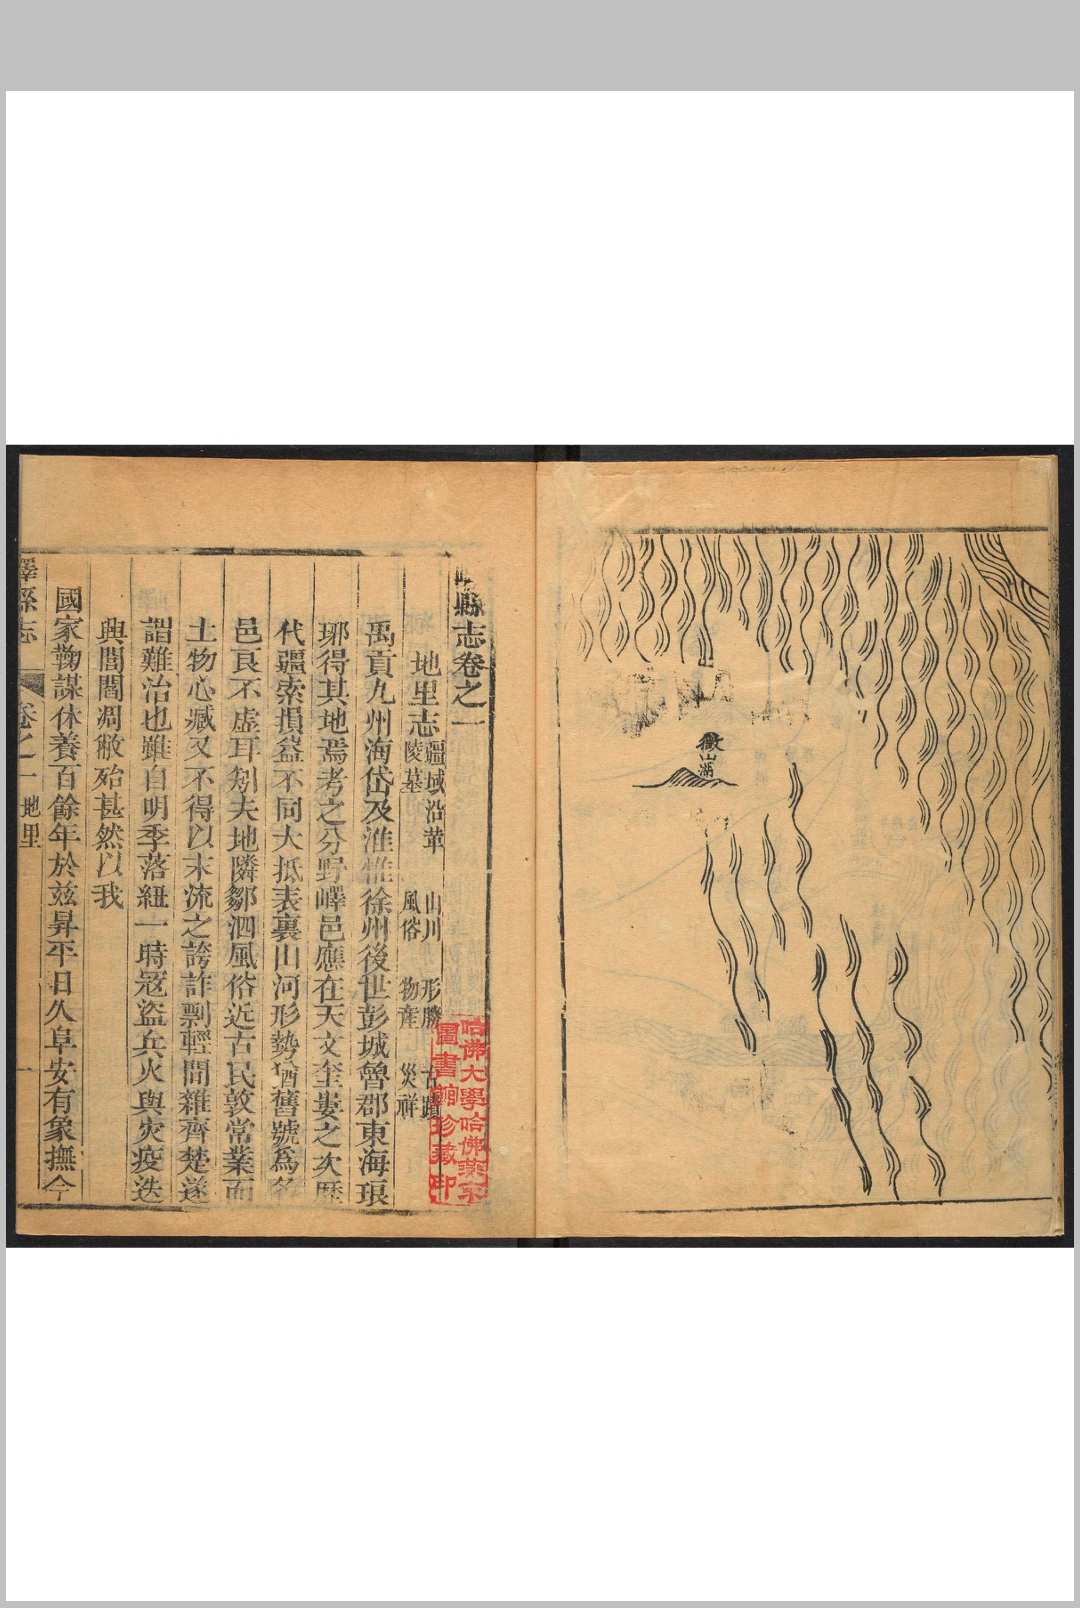 微山湖
嶧縣志卷之一
地里志 疆域 沿革 山川 形勝 古蹟
陵墓 風俗 物產 災祥
禹貢九州海岱及淮惟徐州後世彭城魯郡東海琅
琊得其地焉考之分野嶧邑應在天文奎婁之次歷
代疆索損益不同大抵表裏山河形勢猶舊號為
邑良不虛耳剗夫地隣鄒泗風俗近古民敦常業而
土物心臧又不得以末流之誇詐剽輕間雜齊楚遂
謂難治也雖自明季落紐一時寇盜兵火與灾疫迭
與閭閻凋敝殆甚然以我
國家鞠謀休養百餘年於茲昇平日久阜安有象撫今
嶧縣志 卷之一 地里 一
哈佛大學哈佛燕京
圖書館珍藏印